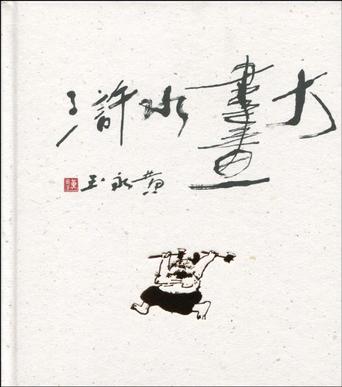 大畫水滸
黄永玉